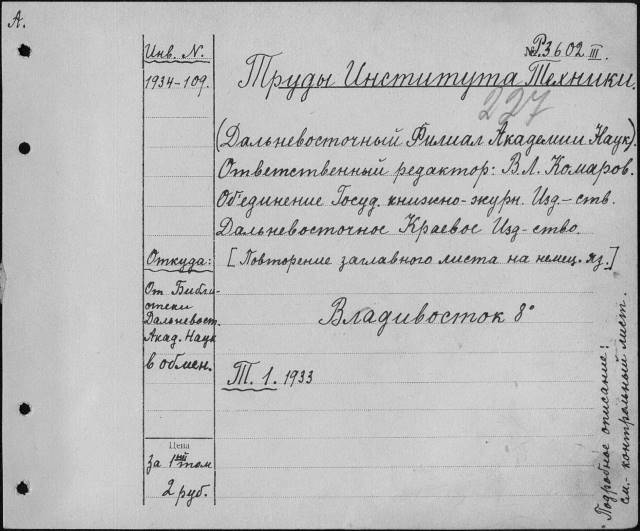 А.
Инв. N.
1934-109.
№ Р.3602 III.
Труды Института Техники.
227
(Дальневосточный Филиал Академии Наук).
Ответственный редактор: В.Л. Комаров.
Объединение Госуд. книжно-журн. Изд-ств.
Дальневосточное Краевое Изд-ство.
Откуда:
[Повторение заглавного листа на немец. яз.]
От Библи-
отеки
Дальневост.
Акад. Наук
в обмен.
Владивосток 8°
Т. 1. 1933
Цена
за 1ый том
2 руб.
Подробное описание:
см. контрольный лист.